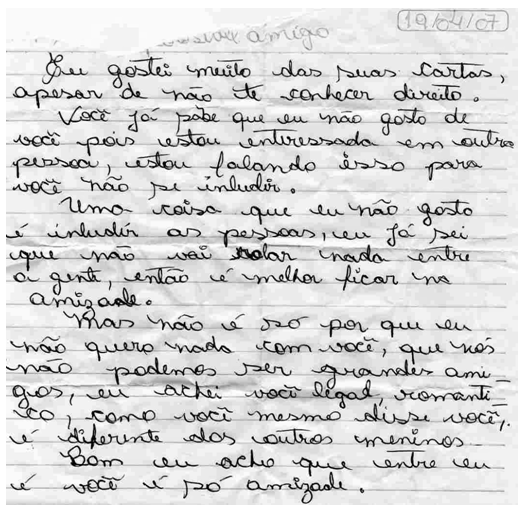 19/04/07
amigo
Eu gostei muito das suas cartas,
apesar de não te conhecer direito.
Você já sabe que eu não gosto de
você pois estou entiressada em outra
pessoa, estou falando isso para
você não se inludir.
Uma coisa que eu não gosto
é inludir as pessoas, eu já sei
que não vai rolar nada entre
a gente, então é melhor ficar na
amizade.
Mas não é só por que eu
não quero nada com você, que nós
não podemos ser grandes ami-
gos, eu achei você legal, romanti-
co, como você mesmo disse você,
é diferente dos outros meninos
Bom eu acho que entre eu
é você é só amizade.